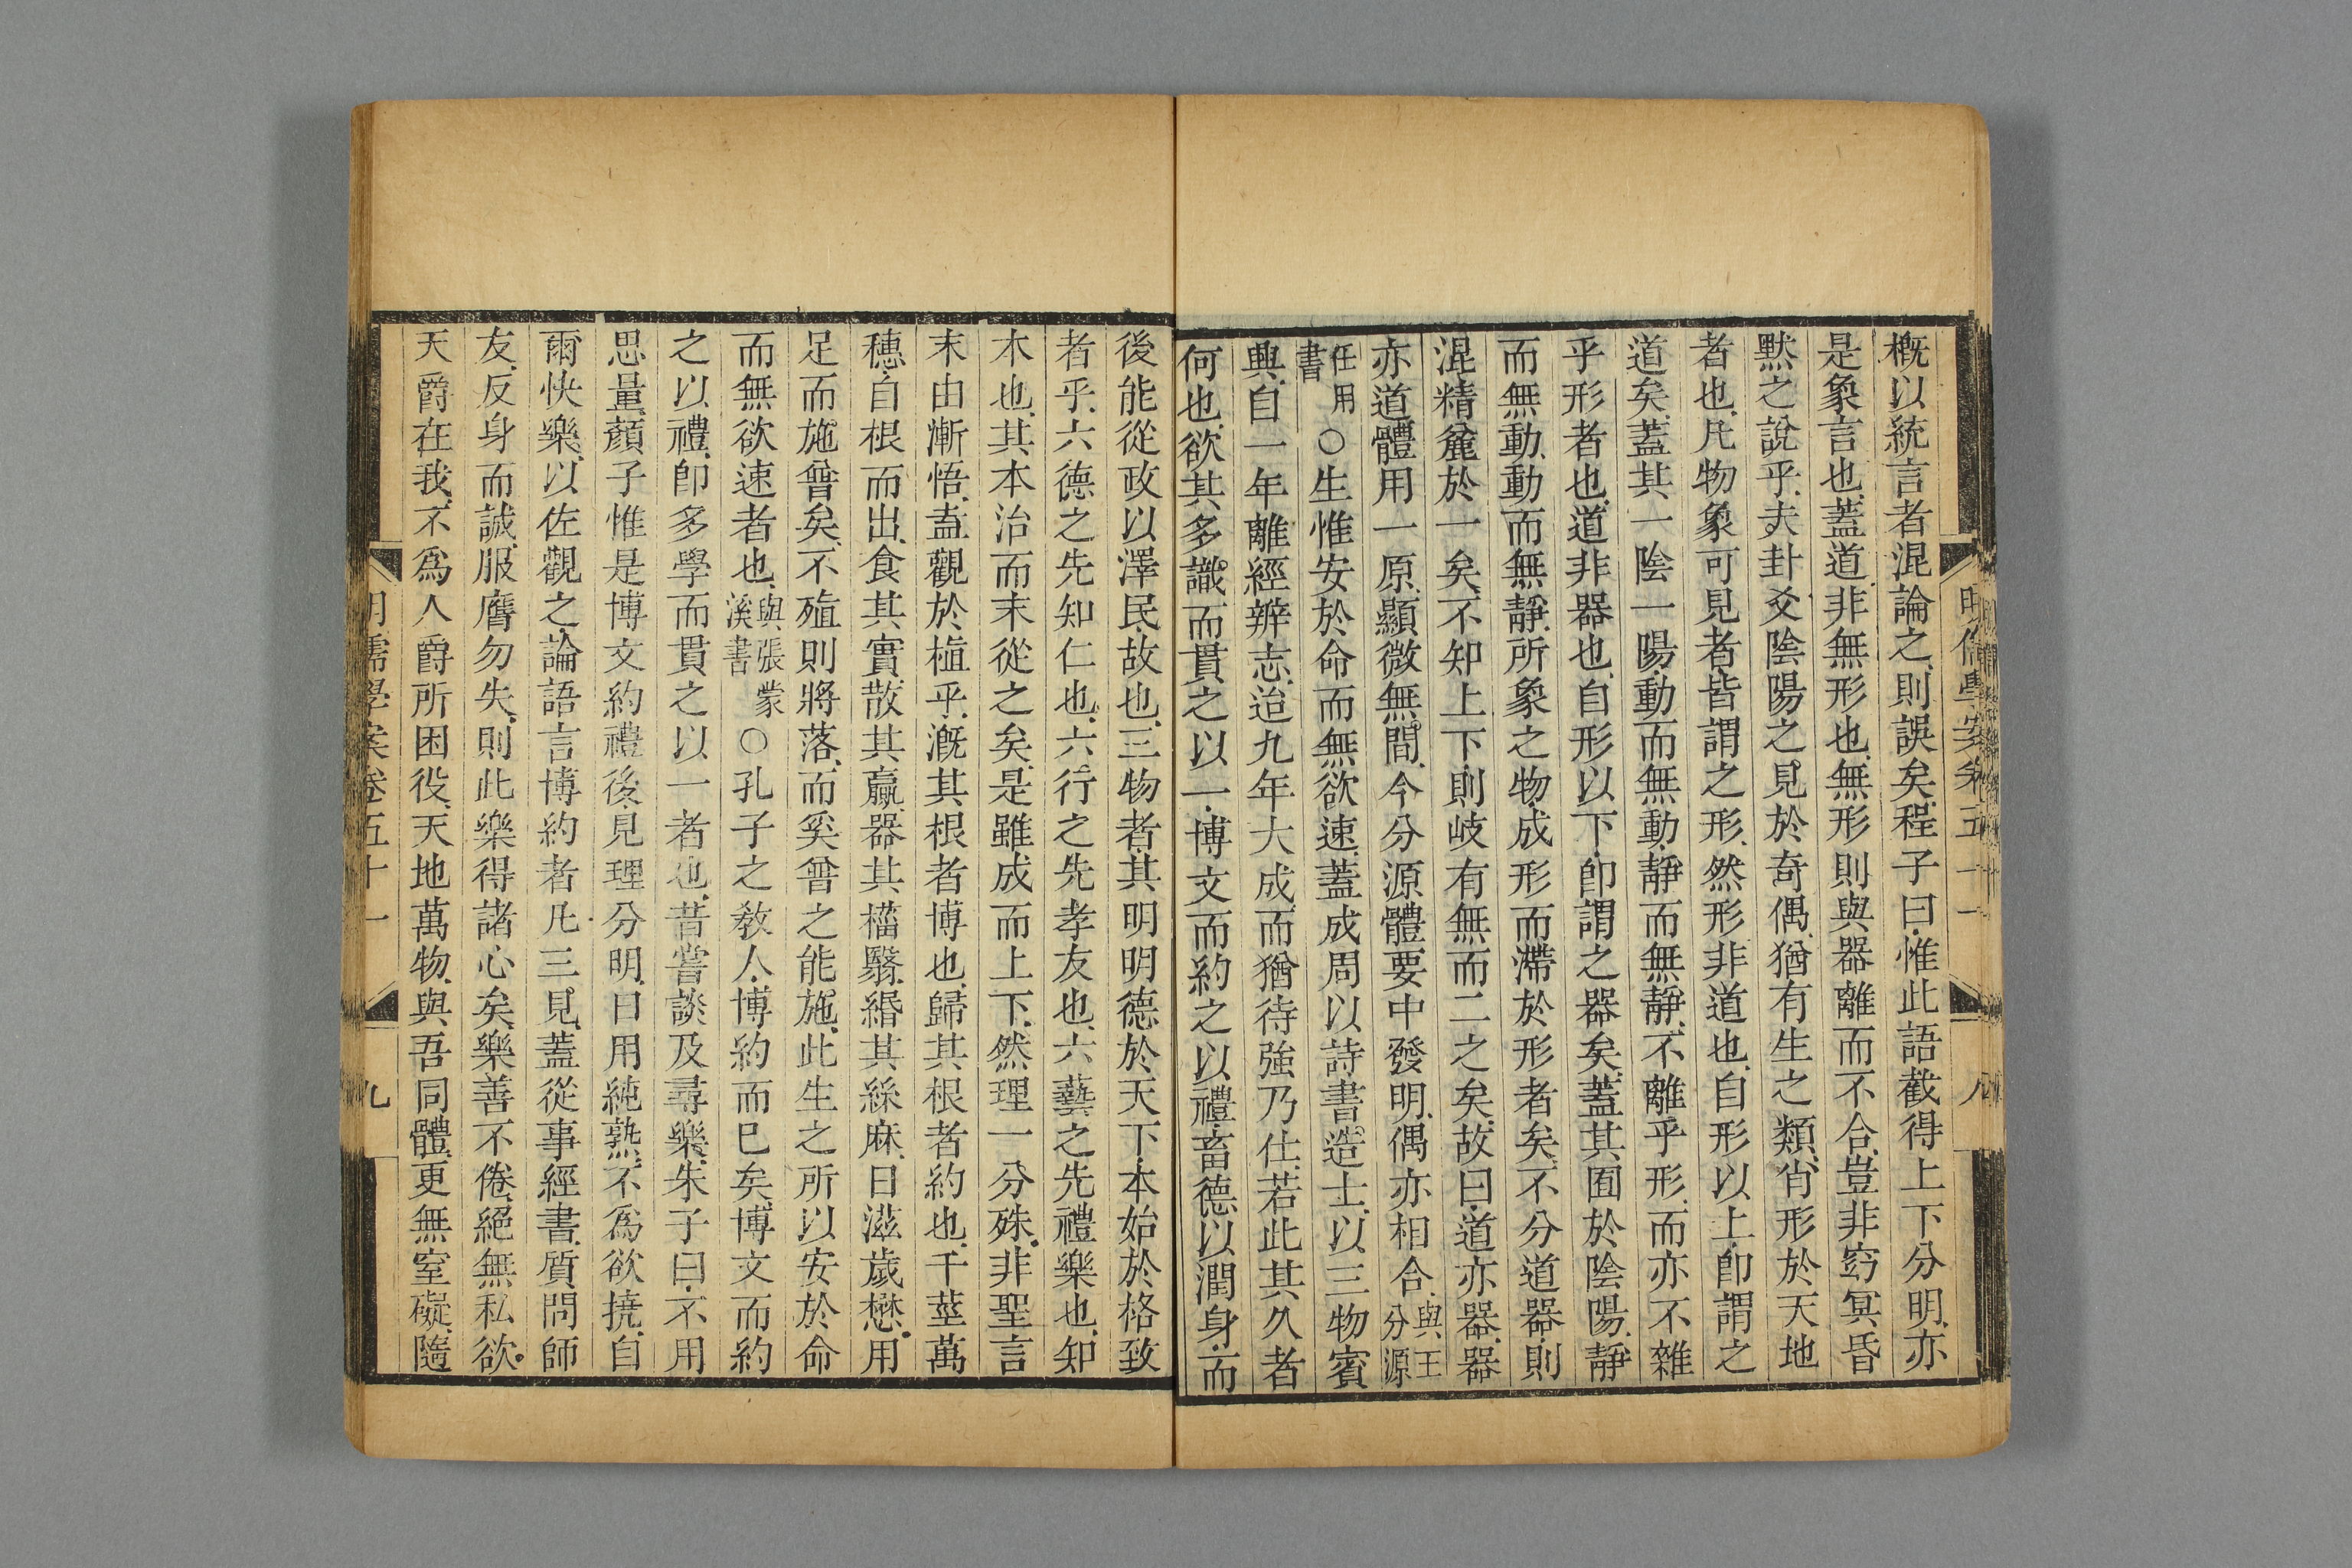 明儒學案卷五十一 八
概以統言者混論之則誤矣程子曰惟此語截得上下分明亦
是象言也蓋道非無形也無形則與器離而不合豈非窈冥昏
默之說乎夫卦爻陰陽之見於奇偶猶有生之類肖形於天地
者也凡物象可見者皆謂之形然形非道也自形以上卽謂之
道矣蓋其一陰一陽動而無動靜而無靜不離乎形而亦不雜
乎形者也道非器也自形以下卽謂之器矣蓋其囿於陰陽靜
而無動動而無靜所象之物成形而滯於形者矣不分道器則
混精麄於一矣不知上下則岐有無而二之矣故曰道亦器器
亦道體用一原顯微無間今分源體要中發明偶亦相合與王分源
任用書○生惟安於命而無欲速蓋成周以詩書造士以三物賓
興自一年離經辨志迨九年大成而猶待強乃仕若此其久者
何也欲其多識而貫之以一博文而約之以禮畜德以潤身而
後能從政以澤民故也三物者其明明德於天下本始於格致
者乎六德之先知仁也六行之先孝友也六藝之先禮樂也知
木也其本治而末從之矣是雖成而上下然理一分殊非聖言
末由漸悟盍觀於植乎漑其根者博也歸其根者約也千莖萬
穗自根而出食其實散其贏器其檣翳緡其絲麻日滋歲懋用
足而施普矣不殖則將落而奚普之能施此生之所以安於命
而無欲速者也與張蒙溪書○孔子之敎人博約而已矣博文而約
之以禮卽多學而貫之以一者也昔嘗談及尋樂朱子曰不用
思量顏子惟是博文約禮後見理分明日用純熟不爲欲撓自
爾快樂以佐觀之論語言博約者凡三見蓋從事經書質問師
友反身而誠服膺勿失則此樂得諸心矣樂善不倦絕無私欲
天爵在我不爲人爵所困役天地萬物與吾同體更無窒礙隨
明儒學案卷五十一 九